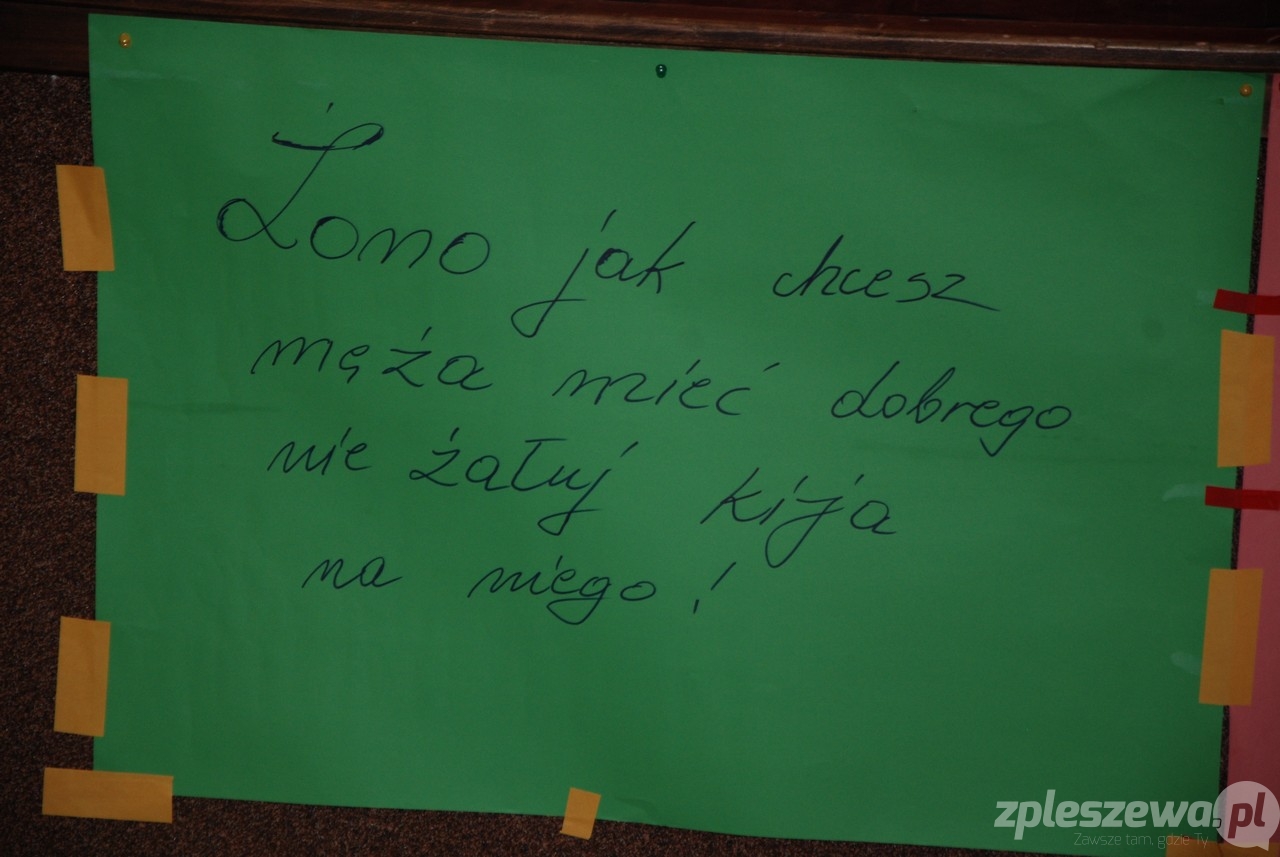 Żono jak chcesz
męża mieć dobrego
nie żałuj kija
na niego!
zpleszewa.pl
Zawsze tam, gdzie Ty